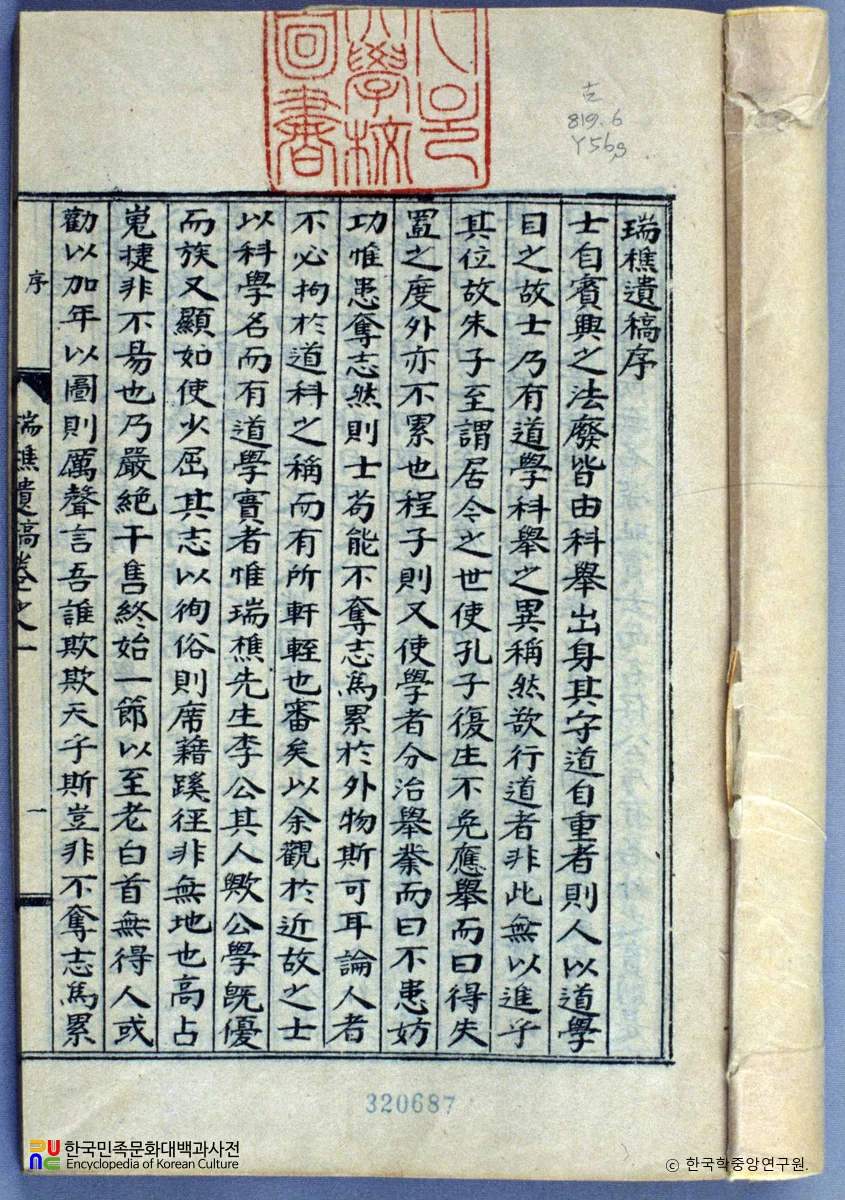 古
819.6
Y56s
瑞樵遺稿序
士自賓興之法廢皆由科舉出身其守道自重者則人以道學
目之故士乃有道學科舉之異稱然欲行道者非此無以進乎
其位故朱子至謂居今之世使孔子復生不免應舉而曰得失
置之度外亦不累也程子則又使學者分治舉業而曰不患妨
功惟患奪志然則士苟能不奪志爲累於外物斯可耳論人者
不必拘於道科之稱而有所軒輊也審矣以余觀於近故之士
以科學名而有道學實者惟瑞樵先生李公其人歟公學旣優
而族又顯如使少屈其志以徇俗則席藉蹊徑非無地也高占
嵬捷非不易也乃嚴絶干售終始一節以至老白首無得人或
勸以加年以圖則厲聲言吾誰欺欺天乎斯豈非不奪志爲累
序
瑞樵遺稿卷之一
一
320687
한국민족문화대백과사전
Encyclopedia of Korean Culture
ⓒ 한국학중앙연구원.